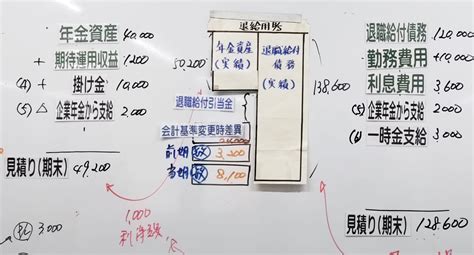 年金資産 40,000
+ 期待運用収益 1,200
(4) + 掛け金 10,000
(5) △ 企業年金から支給 2,000
見積り(期末) 49,200
3,000
1,000
退給用B/S
50,200
年金資産
(実績)
退職給付
債務
(実績)
138,600
退職給付引当金
会計基準変更時差異
前期 3,200
当期 8,100
退職給付債務 120,000
勤務費用 +10,000
利息費用 3,600
(5) 企業年金から支給 2,000
一時金支給 3,000
見積り(期末) 128,600
10,000